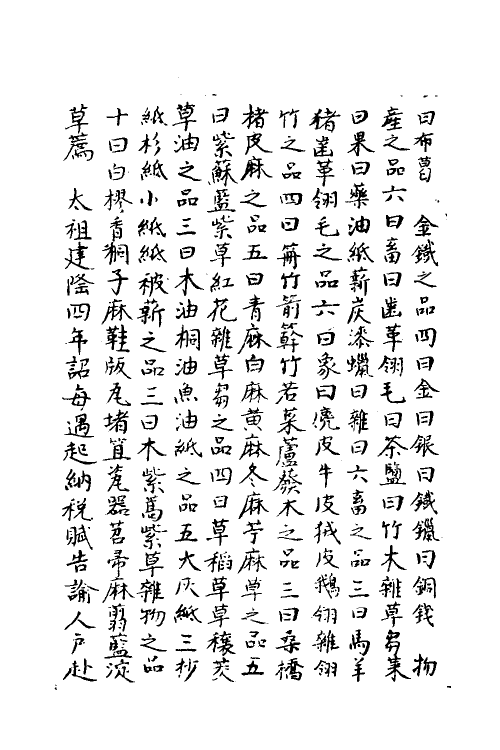 曰布葛　金鐵之品四曰金曰銀曰鐵鑞曰銅錢　物
產之品六曰畜曰齒革翎毛曰茶鹽曰竹木雜草芻萊
曰果曰藥油紙薪炭漆蠟曰雜曰六畜之品三曰馬羊
猪齒革翎毛之品六曰象曰麂皮牛皮狨皮鵝翎雜翎
竹之品四曰𥫱竹箭簳竹若菜蘆䕠木之品三曰桑橘
楮皮麻之品五曰青麻白麻黃麻冬麻苧麻草之品五
曰紫蘇藍紫草紅花雜草芻之品四曰草稻草草穰茭
草油之品三曰木油桐油魚油紙之品五大灰紙三抄
紙杉紙小紙紙被薪之品三曰木柴蒿柴草雜物之品
十曰白樛香桐子麻鞋版瓦堵笪瓷器苕帚麻翦藍淀
草薦　太祖建隆四年詔每遇起納稅賦告諭人戶赴